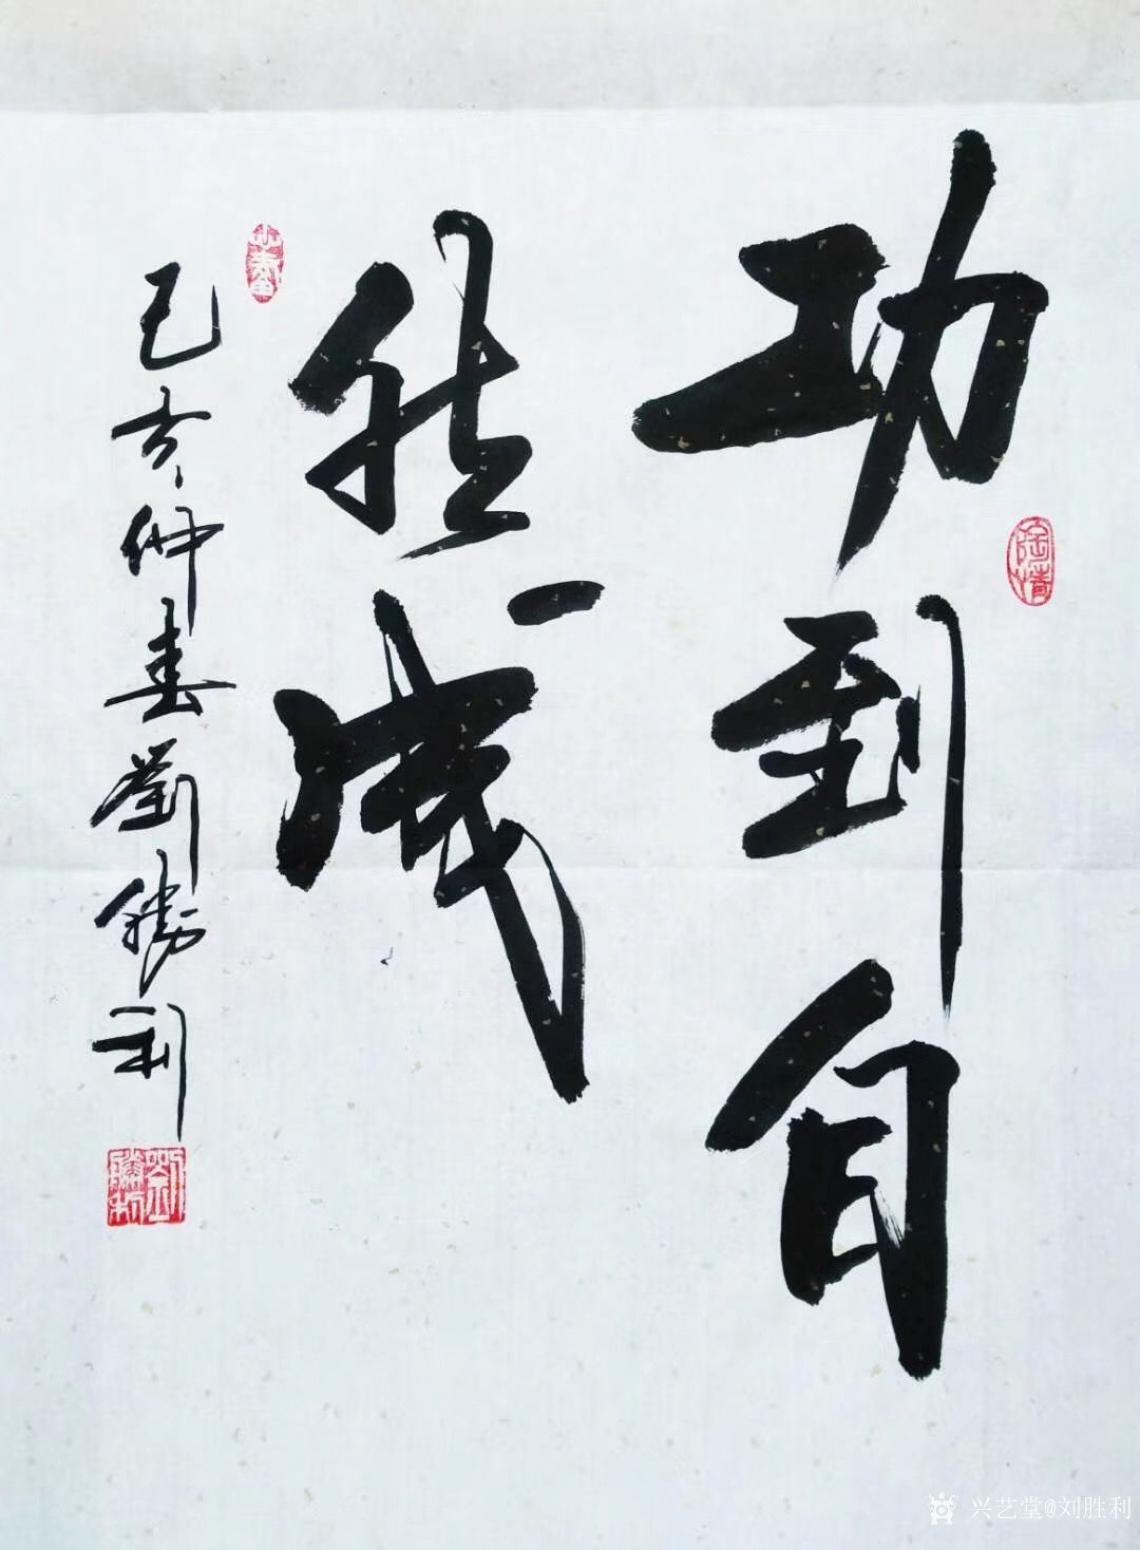 功到自
然成
己亥仲春劉勝利
陶情
劉勝利
兴艺堂@刘胜利